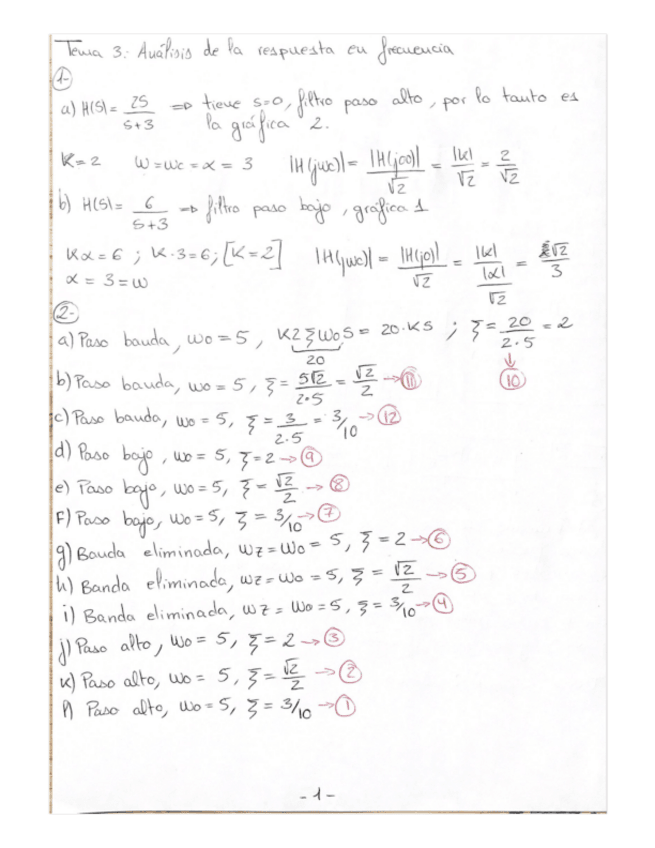 Tema 3: Análisis de la respuesta en frecuencia
1-
a) H(s) = 2s/(s+3) => tiene s=0, filtro paso alto, por lo tanto es
la gráfica 2.
K=2 W=Wc=α=3 |H(jwc)| = |H(j∞)|/√2 = |K|/√2 = 2/√2
b) H(s) = 6/(s+3) => filtro paso bajo, gráfica 1
Kα=6 ; K·3=6; [K=2] |H(jwc)| = |H(j0)|/√2 = |K|/|α|/√2 = √2/3
α = 3 = w
2-
a) Paso banda, wo=5, K2ξwos = 20·Ks ; ξ = 20/2·5 = 2
20 ↓
b) Paso banda, wo=5, ξ = 5√2/2·5 = √2/2 → 11 10
c) Paso banda, wo=5, ξ = 3/2·5 = 3/10 → 12
d) Paso bajo, wo=5, ξ=2 → 9
e) Paso bajo, wo=5, ξ = √2/2 → 8
F) Paso bajo, wo=5, ξ = 3/10 → 7
g) Banda eliminada, wz=wo=5, ξ=2 → 6
h) Banda eliminada, wz=wo=5, ξ = √2/2 → 5
i) Banda eliminada, wz=wo=5, ξ = 3/10 → 4
j) Paso alto, wo=5, ξ=2 → 3
k) Paso alto, wo=5, ξ = √2/2 → 2
l) Paso alto, wo=5, ξ = 3/10 → 1
-1-